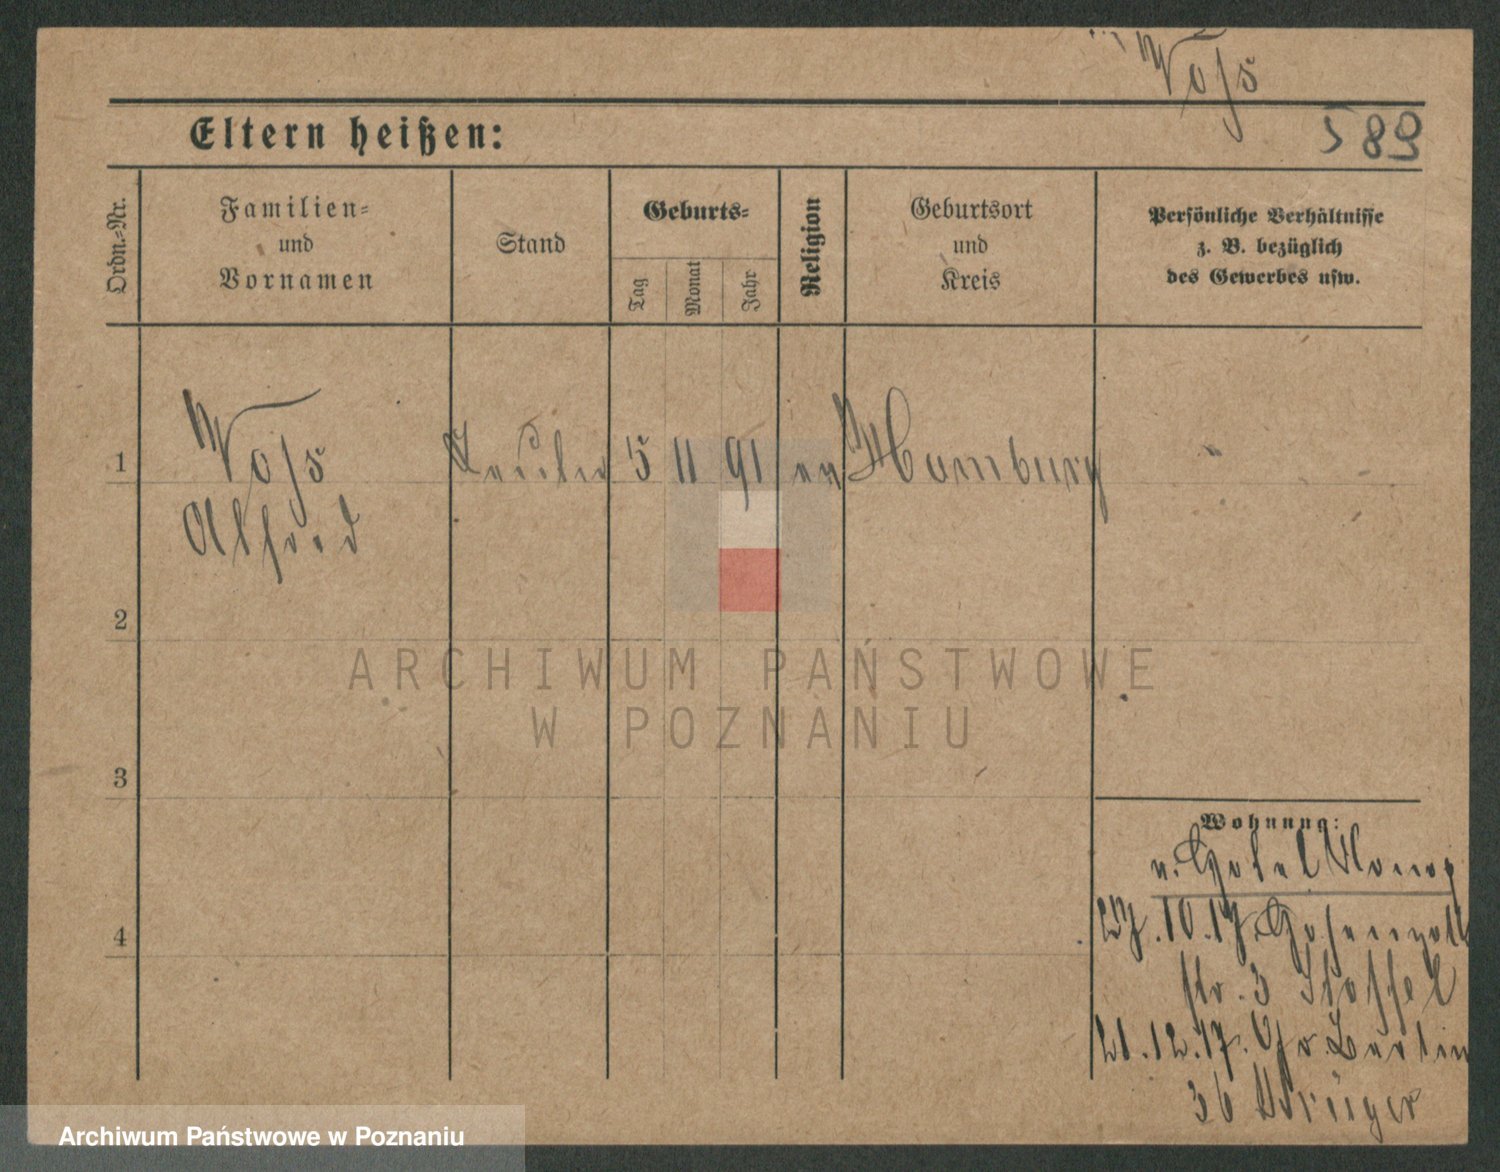 Voß
589
Eltern heißen:
Ordn.=Nr.
Familien=
und
Vornamen
Stand
Geburts=
Tag
Monat
Jahr
Religion
Geburtsort
und
Kreis
Persönliche Verhältnisse
z. B. bezüglich
des Gewerbes usw.
1
Voß
5 11 91 ev Hamburg
Alfred
2
ARCHIWUM PAŃSTWOWE
W POZNANIU
3
Wohnung:
v. Hotel
4
27.10.17.
str. 3 Stoffel
21.12.17. Gr. Berlin
36 Krüger
Archiwum Państwowe w Poznaniu